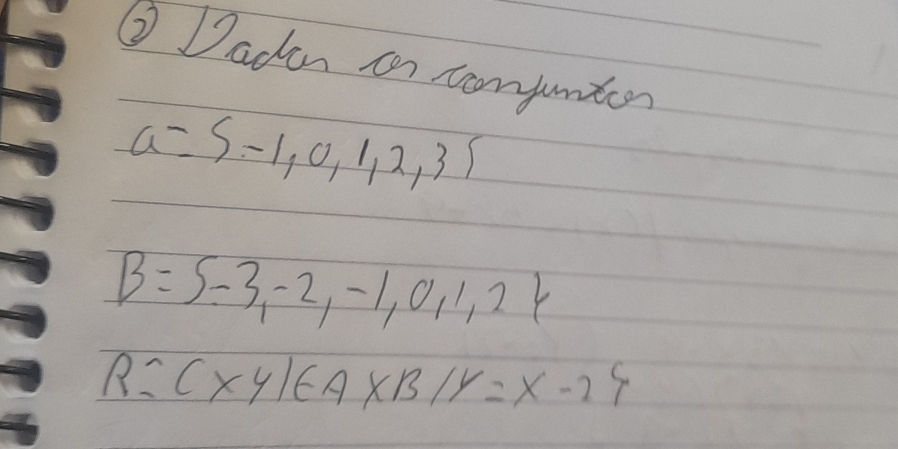 ② Dados os conjuntos
a = {-1, 0, 1, 2, 3}
B = {-3, -2, -1, 0, 1, 2}
R = (x y) ∈ A x B / y = x - 2}